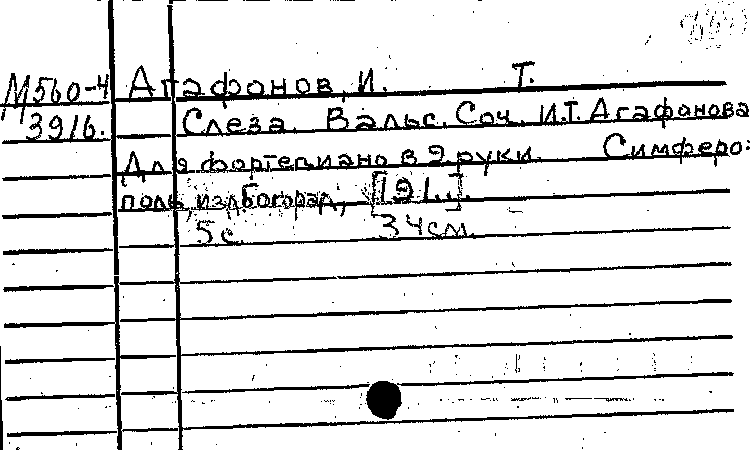 М560-4 Агафонов, И. Т.
3916. Слеза. Вальс. Соч. И.Т. Агафонова
Для фортепиано в 2 руки. Симферо-
поль, изд. Богорад, [191..].
5 с. 34 см.